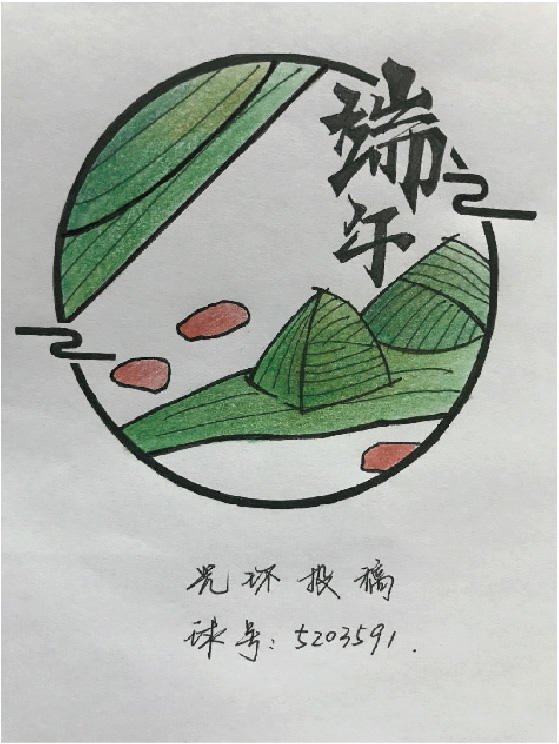 端午
光环投稿
球号：5203591.